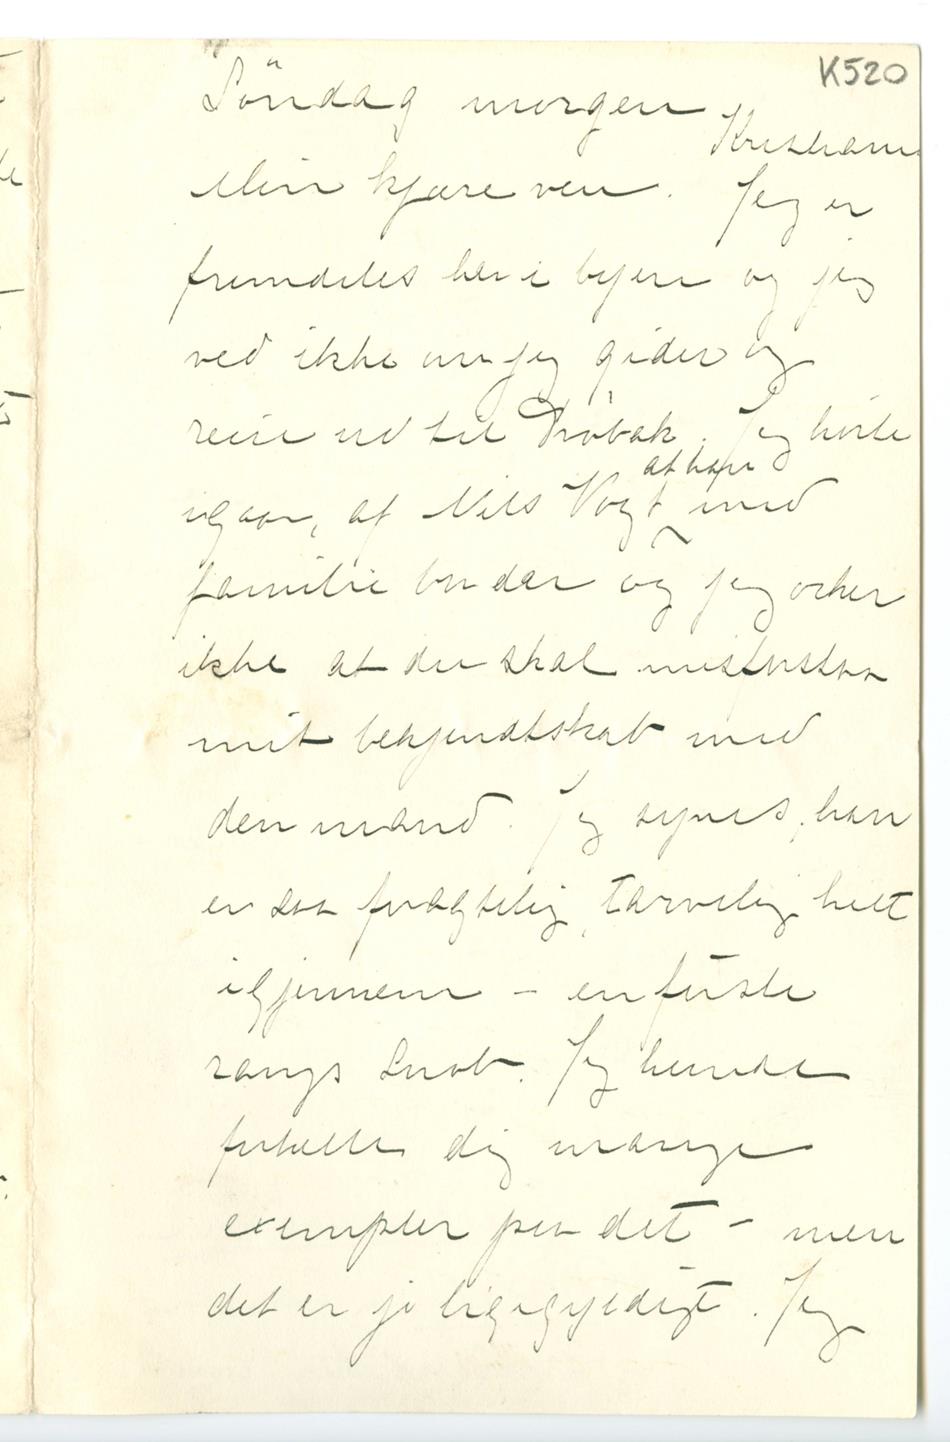 K520
Söndag morgen
Kristiania
Min kjære ven. Jeg er
fremdeles her i byen og jeg
ved ikke om jeg gider og
reise ud til Dröbak. Jeg hörte
igaar, af Nils Vogt at han med
familie bor der og jeg orker
ikke at du skal misforstaa
mit bekjendtskab med
den mand. Jeg synes, han
er saa frygtelig, tarvelig helt
igjennem – en förste
rangs Snob. Jeg kunde
fortælle dig mange
exempler paa det – men
det er jo ligegyldigt. Jeg